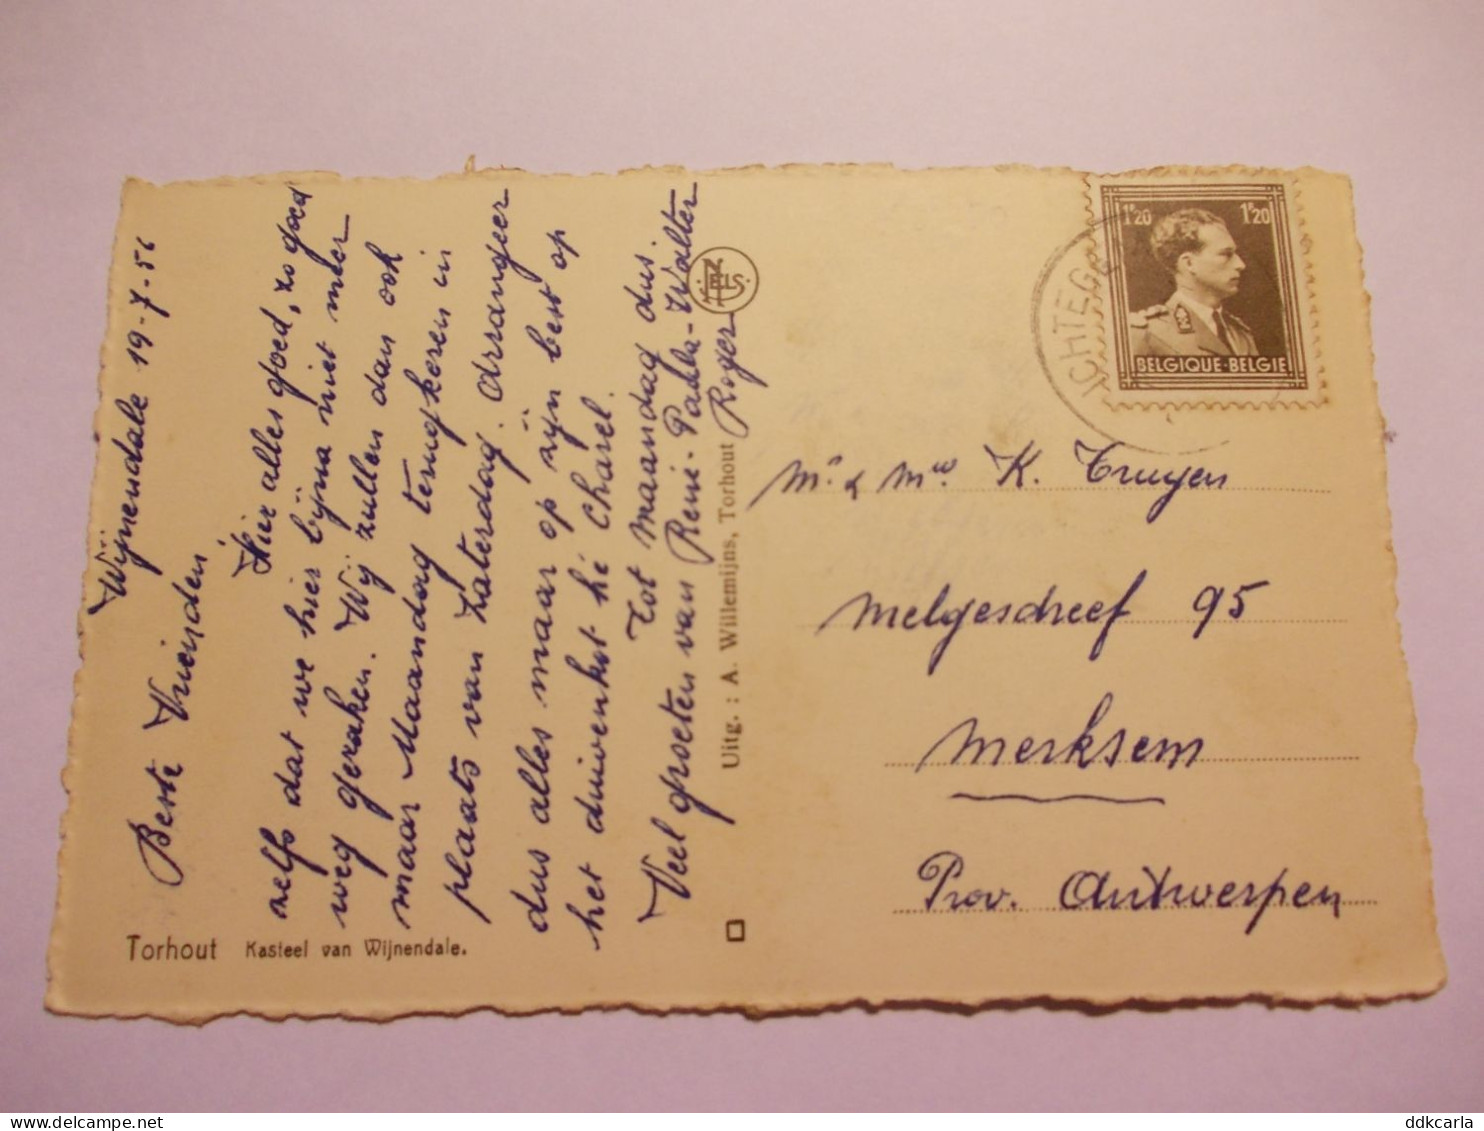 Wijnendale 19-7-56
Beste Vrienden
Hier alles goed, zo goed
zelfs dat we hier bijna niet meer
weg geraken. Wij zullen dan ook
maar Maandag terugkeren in
plaats van Zaterdag. Arrangeer
dus alles maar op zijn best op
het duivenkot hé Charel.
Tot maandag dus.
Veel groeten van René-Paula-Walter
Roger
Torhout Kasteel van Wijnendale.
Uitg. : A. Willemijns, Torhout
ELS.
ICHTEGE
1F20 1F20
BELGIQUE-BELGIE
Mr. & Mvw. K. Truyen
Melgesdreef 95
Merksem
Prov. Antwerpen
ddkcarla